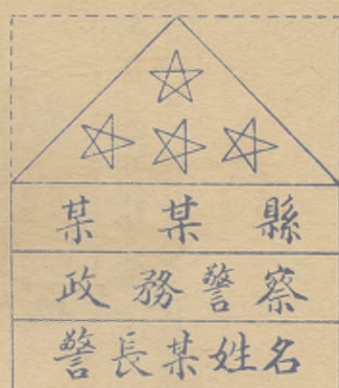 某某縣
政務警察
警長某姓名